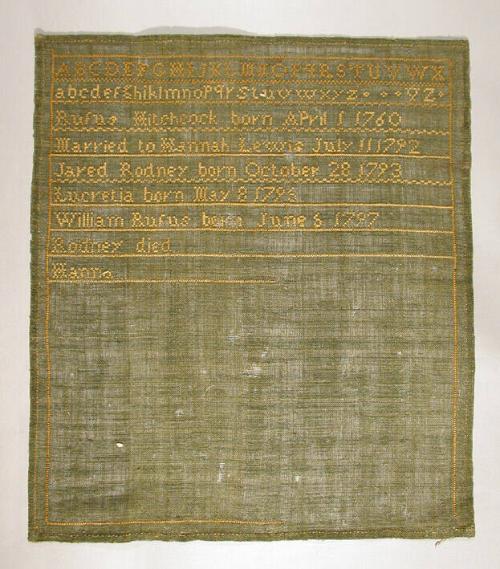 ABCDEFGHIJKLMNOPQRSTUVWX
abcdefghiklmnopqrstuvwxyz YZ
Rufus Hitchcock born April 1 1760
Married to Hannah Lewis July 11 1792
Jared Rodney born October 28 1793
Lucretia born May 8 1796
William Rufus born June 6 1797
Rodney died
Hanna